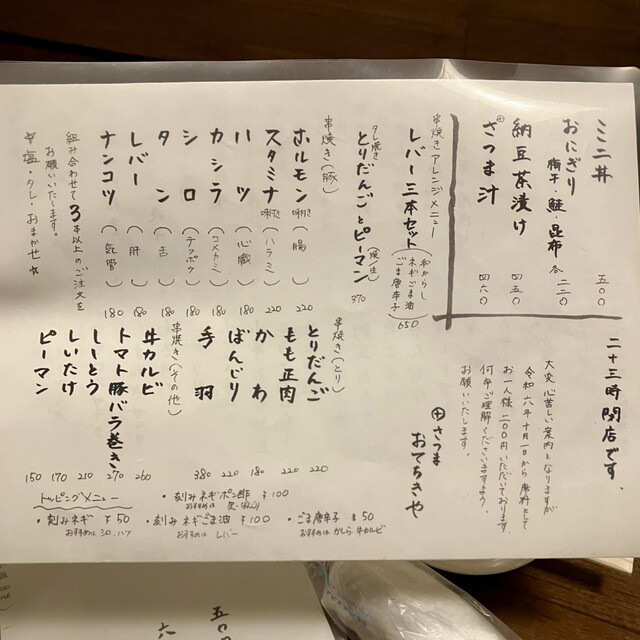 ミニ丼 五〇〇
おにぎり 各二三〇
梅干・鮭・昆布
納豆茶漬け 四五〇
さつま汁 四六〇
串焼きアレンジメニュー
レバー三本セット 650
和からし
ネギごま油
ごま唐辛子
タレ焼き
とりだんごとピーマン(焼/生) 370
串焼き(豚)
ホルモン串焼き(腸) 220
スタミナ串焼き(ハラミ) 220
ハツ(心臓) 180
カシラ(コメカミ) 180
シロ(テッポウ) 180
タン(舌) 180
レバー(肝) 180
ナンコツ(気管) 180
組み合わせて3本以上のご注文を
お願いいたします。
☆塩・タレ・おまかせ☆
二十三時閉店です。
大変心苦しい案内となりますが
令和六年十月一日から席料として
お一人様二〇〇円いただいております。
何卒ご理解くださいますよう、
お願いいたします。
㊉さつま
おてらきや
串焼き(とり)
とりだんご 220
もも正肉 220
かわ 180
ぼんじり 220
手羽 380
串焼き(その他)
牛カルビ 260
トマト豚バラ巻き 270
ししとう 210
しいたけ 170
ピーマン 150
トッピングメニュー
・刻みネギ ¥50
おすすめは シロ、ハツ
・刻みネギポン酢 ¥100
・刻みネギごま油 ¥100
おすすめは レバー
・ごま唐辛子 ¥50
おすすめは かしら 牛カルビ
五〇〇
六